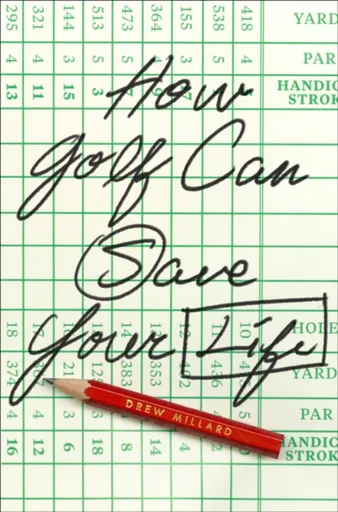 295 321 144 513 473 364 155 538 418 YARD
4 4 3 5 5 4 3 5 4 PAR
13 11 15 3 HANDIC
STROK
How
Golf Can
Save
Your Life
18 HOLE
374 YARD
DREW MILLARD
4 4 3 PAR
16 12 6 18 8 14 HANDIC
STROK